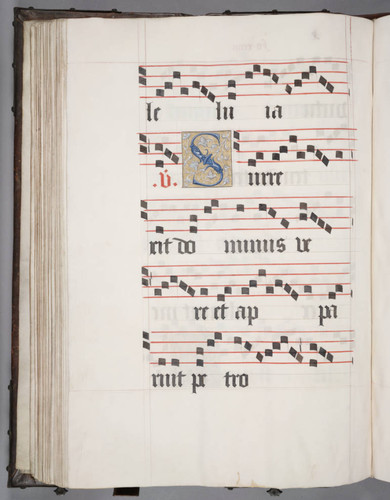 le lu ia
.V. Surre
xit do minus ve
re et ap pa
ruit pe tro